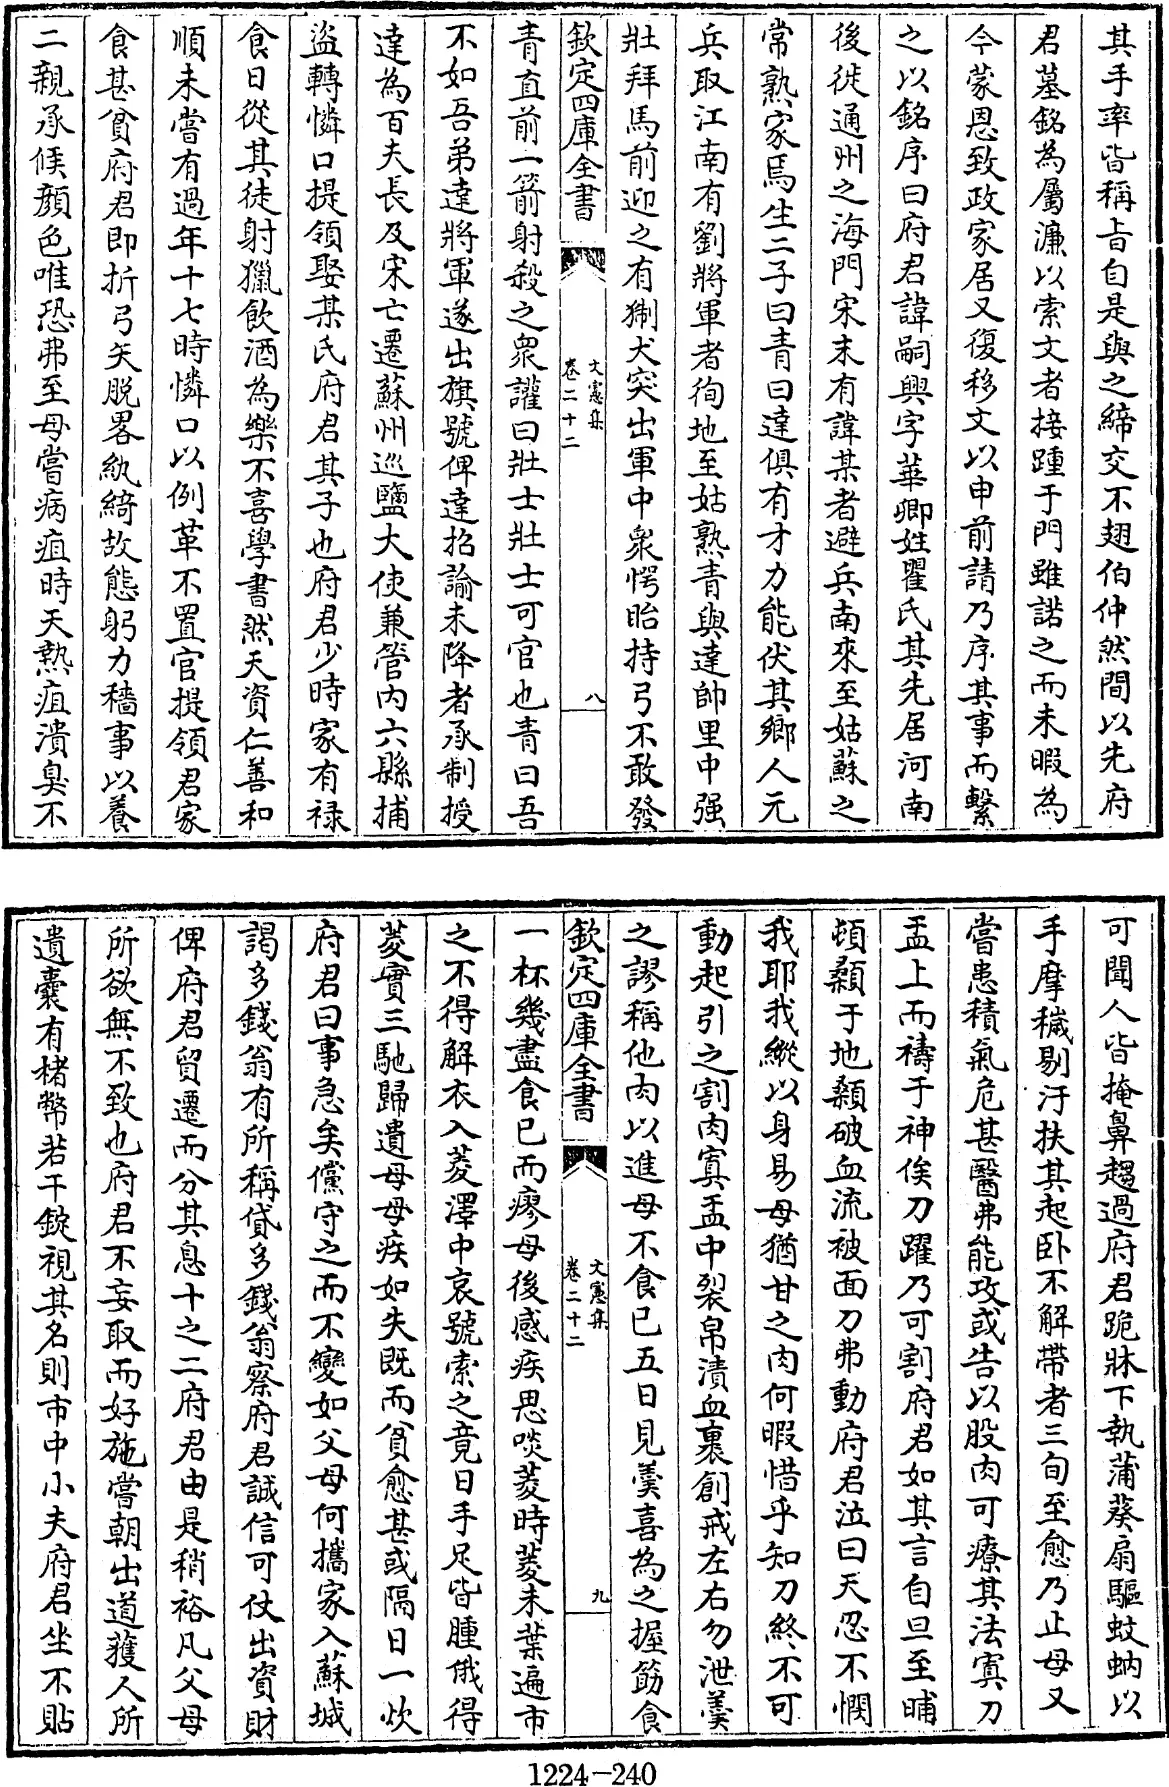 其手率皆稱㫖自是與之締交不翅伯仲然間以先府
君墓銘為屬濂以索文者接踵于門雖諾之而未暇為
今蒙恩致政家居又復移文以申前請乃序其事而繫
之以銘序曰府君諱嗣興字華卿姓瞿氏其先居河南
後徙通州之海門宋末有諱某者避兵南來至姑蘇之
常熟家焉生二子曰青曰達俱有才力能伏其鄉人元
兵取江南有劉將軍者徇地至姑熟青與達帥里中强
壯拜馬前迎之有猘犬突出軍中衆愕眙持弓不敢發
欽定四庫全書
文憲集
卷二十二
八
青直前一箭射殺之衆讙曰壯士壯士可官也青曰吾
不如吾弟達將軍遂出旗號俾達招諭未降者承制授
達為百夫長及宋亡遷蘇州巡鹽大使兼管内六縣捕
盜轉憐口提領娶某氏府君其子也府君少時家有禄
食日從其徒射獵飲酒為樂不喜學書然天資仁善和
順未嘗有過年十七時憐口以例革不置官提領君家
食甚貧府君即折弓矢脱畧紈綺故態躬力穡事以養
二親承候顔色唯恐弗至母嘗病疽時天熱疽潰臭不
可聞人皆掩鼻趨過府君跪牀下執蒲葵扇驅蚊蚋以
手摩穢剔汙扶其起卧不解帶者三旬至愈乃止母又
嘗患積氣危甚醫弗能攻或告以股肉可療其法寘刀
盂上而禱于神俟刀躍乃可割府君如其言自旦至晡
頓顙于地顙破血流被面刀弗動府君泣曰天忍不憫
我耶我縱以身易母猶甘之肉何暇惜乎知刀終不可
動起引之割肉寘盂中裂帛漬血裹創戒左右勿泄羹
之謬稱他肉以進母不食已五日見羹喜為之握筯食
欽定四庫全書
文憲集
卷二十二
九
一杯幾盡食已而瘳母後感疾思啖菱時菱未葉遍市
之不得解衣入菱澤中哀號索之竟日手足皆腫俄得
菱實三馳歸遺母母疾如失既而貧愈甚或隔日一炊
府君曰事急矣儻守之而不變如父母何攜家入蘇城
謁多錢翁有所稱貸多錢翁察府君誠信可仗出資財
俾府君貿遷而分其息十之二府君由是稍裕凡父母
所欲無不致也府君不妄取而好施嘗朝出道獲人所
遺囊有楮幣若干錠視其名則市中小夫府君坐不貼
1224-240